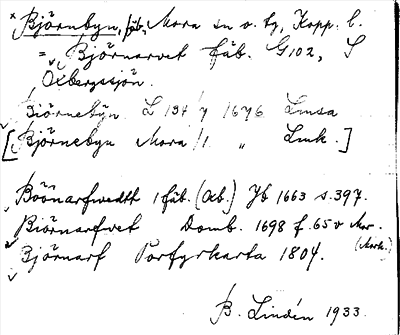 * Björnbyn, fäb., Mora sn o. tg, Kopp. l.
= Björnarvet fäb. G102, S
Oxbergssjön.
Biörnebÿn L 134/7 1676 Linsa
[Björnebyn Mora /1 " Link.]
Böönarfwedtt 1 fäb. (Oxb.) Jb 1663 s. 397.
Biörnarfvet Domb. 1698 f. 65 v Mor.
(Mork.)
Björnarf Porfyrkarta 1804.
B. Lindén 1933.